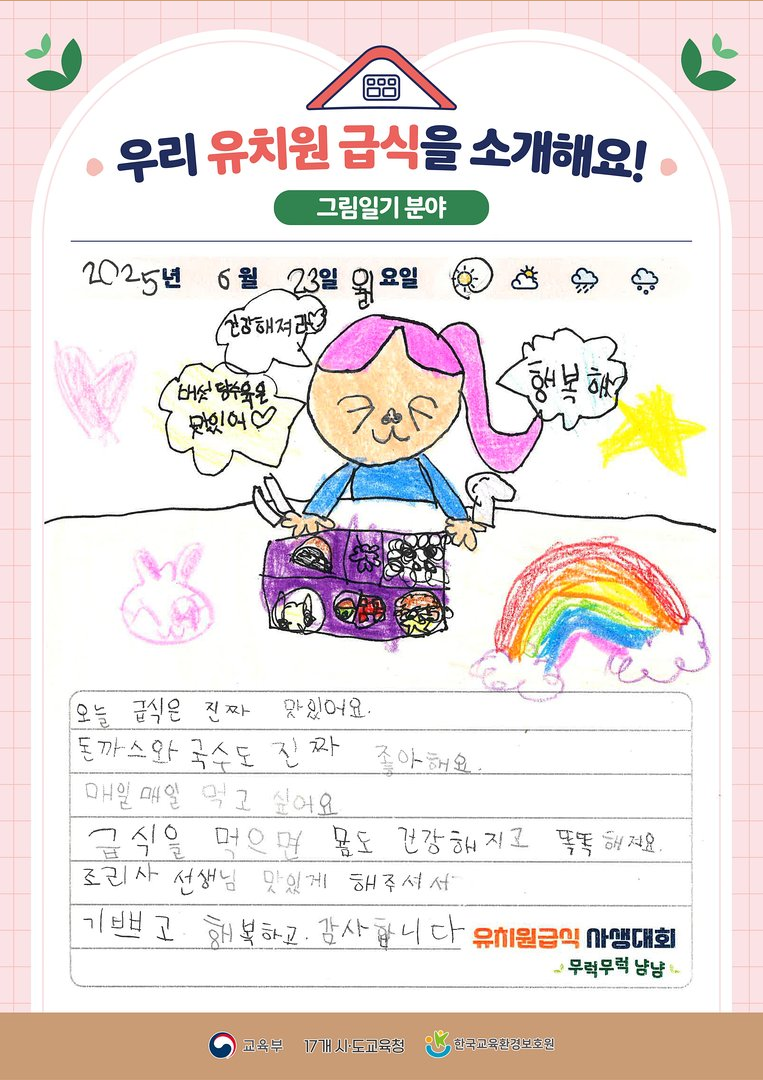 우리 유치원 급식을 소개해요!
그림일기 분야
2025년 6월 23일 월요일
건강해져라
버섯 탕수육은
맛있어♡
행복해
오늘 급식은 진짜 맛있어요.
돈까스와 국수도 진짜 좋아해요.
매일매일 먹고 싶어요
급식을 먹으면 몸도 건강해지고 똑똑해져요.
조리사 선생님 맛있게 해주셔서
기쁘고 행복하고 감사합니다
유치원급식 사생대회
무럭무럭 냠냠
교육부 17개 시·도교육청 한국교육환경보호원